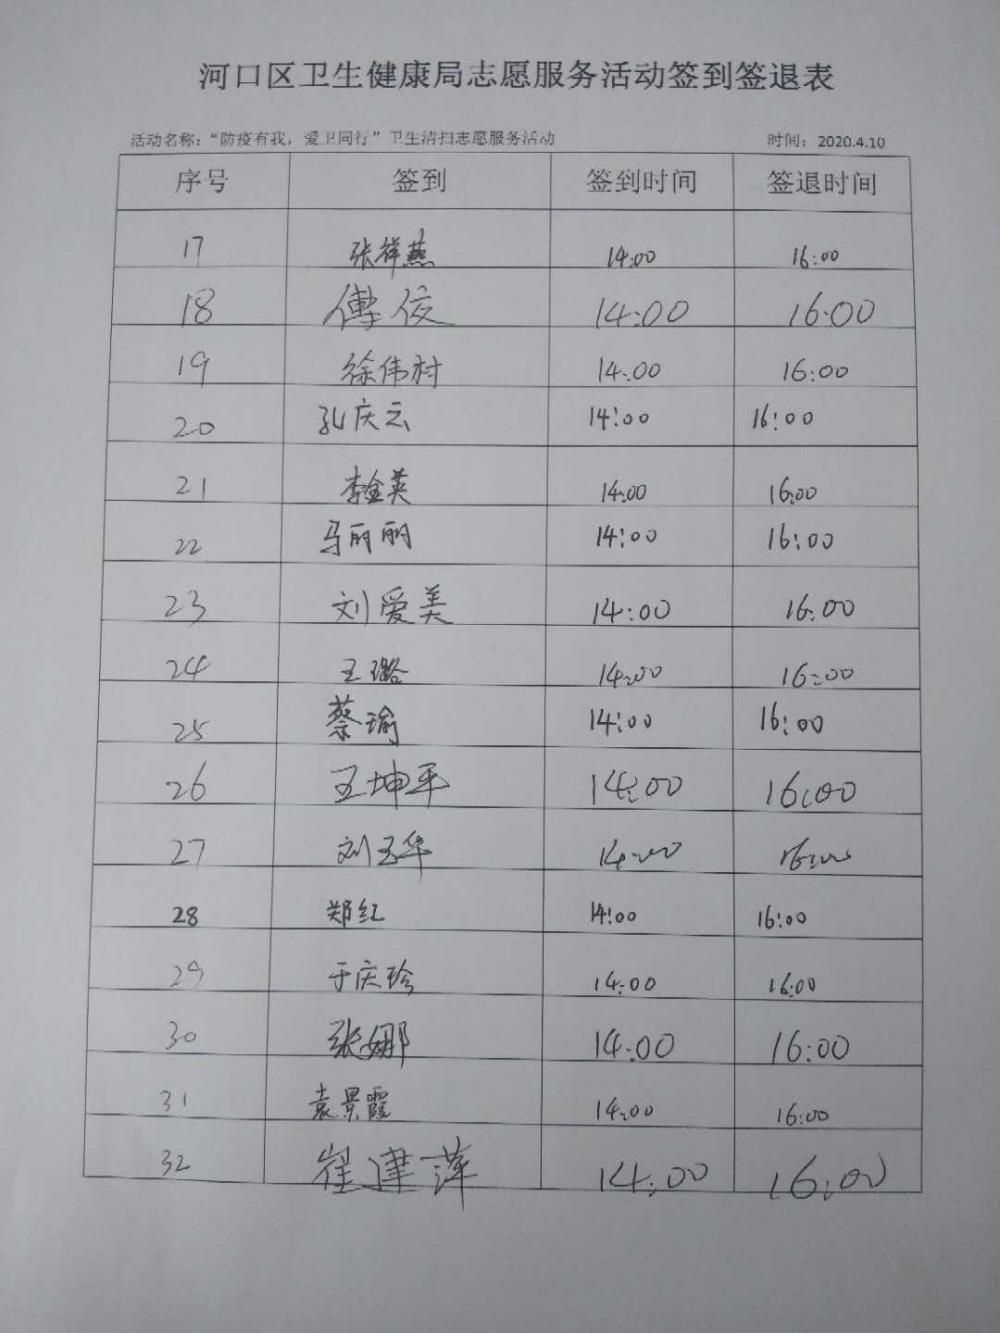 河口区卫生健康局志愿服务活动签到签退表
活动名称：“防疫有我，爱卫同行”卫生清扫志愿服务活动 时间：2020.4.10
序号 签到 签到时间 签退时间
17 张祥燕 14:00 16:00
18 傅俊 14:00 16:00
19 徐伟村 14:00 16:00
20 孔庆云 14:00 16:00
21 李金英 14:00 16:00
22 马丽丽 14:00 16:00
23 刘爱美 14:00 16:00
24 王璐 14:00 16:00
25 蔡瑜 14:00 16:00
26 王坤平 14:00 16:00
27 刘玉华 14:00 16:00
28 郑红 14:00 16:00
29 于庆珍 14:00 16:00
30 张娜 14:00 16:00
31 袁景霞 14:00 16:00
32 崔建萍 14:00 16:00